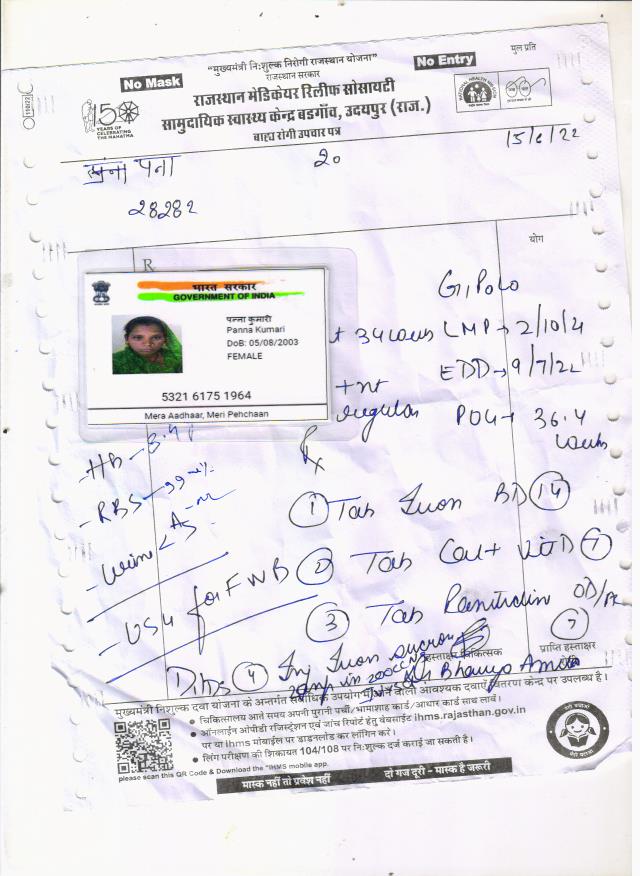 "मुख्यमंत्री नि:शुल्क निरोगी राजस्थान योजना"
मुल प्रति
No Mask
राजस्थान सरकार
No Entry
राजस्थान मेडिकेयर रिलीफ सोसायटी
सामुदायिक स्वास्थ्य केन्द्र बडगाँव, उदयपुर (राज.)
बाह्य रोगी उपचार पत्र
150
YEARS OF
CELEBRATING
THE MAHATMA
15/6/22
पना
20
28282
योग
R
भारत सरकार
GOVERNMENT OF INDIA
पन्ना कुमारी
Panna Kumari
DoB: 05/08/2003
FEMALE
5321 6175 1964
Mera Aadhaar, Meri Pehchaan
G1P0L0
LMP → 2/10/21
EDD → 9/7/22
regular POG → 36.4
weeks
- HB -
- RBS - 99
- Urine
- USG for FWB
Rx
① Tab Iron BD 14
② Tab Cal + Vit D 7
③ Tab Ranitidin OD 7
④ Inj Iron sucrose
in 200cc NS
हस्ताक्षर चिकित्सक
प्राप्ति हस्ताक्षर
मुख्यमंत्री निशुल्क दवा योजना के अन्तर्गत सर्वाधिक उपयोग में आने वाली आवश्यक दवाएं वितरण केन्द्र पर उपलब्ध है।
• चिकित्सालय आते समय अपनी पुरानी पर्ची/भामाशाह कार्ड/आधार कार्ड साथ लावें।
• ऑनलाईन ओपीडी रजिस्ट्रेशन एवं जांच रिपोर्ट हेतु वेबसाईट ihms.rajasthan.gov.in
पर या ihms मोबाईल पर डाडनलोड कर लॉगिन करें।
• लिंग परीक्षण की शिकायत 104/108 पर नि:शुल्क दर्ज कराई जा सकती है।
please scan this QR Code & Download the "IHMS mobile app.
मास्क नहीं तो प्रवेश नहीं
दो गज दूरी - मास्क है जरूरी